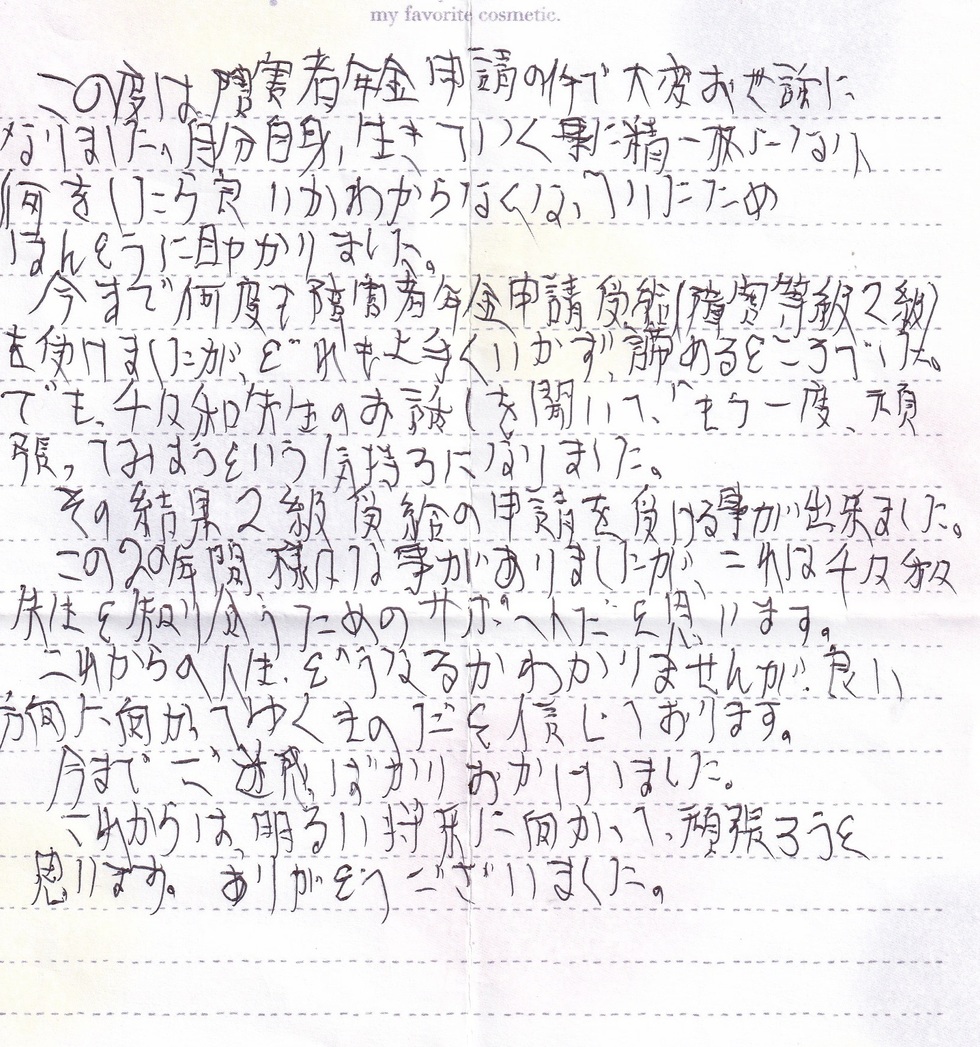 my favorite cosmetic.
この度は、障害者年金申請の件で大変お世話に
なりました。自分自身、生きていく事に精一杯になり、
何をしたら良いかわからなくなっていたため
ほんとうに助かりました。
今まで何度も障害者年金申請受給(障害等級2級)
を受けましたが、どれも上手くいかず、諦めるところでした。
でも、千々和先生のお話しを聞いて、"もう一度、頑
張ってみようという気持ちになりました。
その結果2級受給の申請を受ける事が出来ました。
この20年間様々な事がありましたが、これは千々和
先生と知り合うための だと思います。
これからの人生、どうなるかわかりませんが、良い
方向へ向かってゆくものだと信じております。
今までご迷惑ばかりおかけしました。
これからは、明るい将来に向かって、頑張ろうと
思います。ありがとうございました。